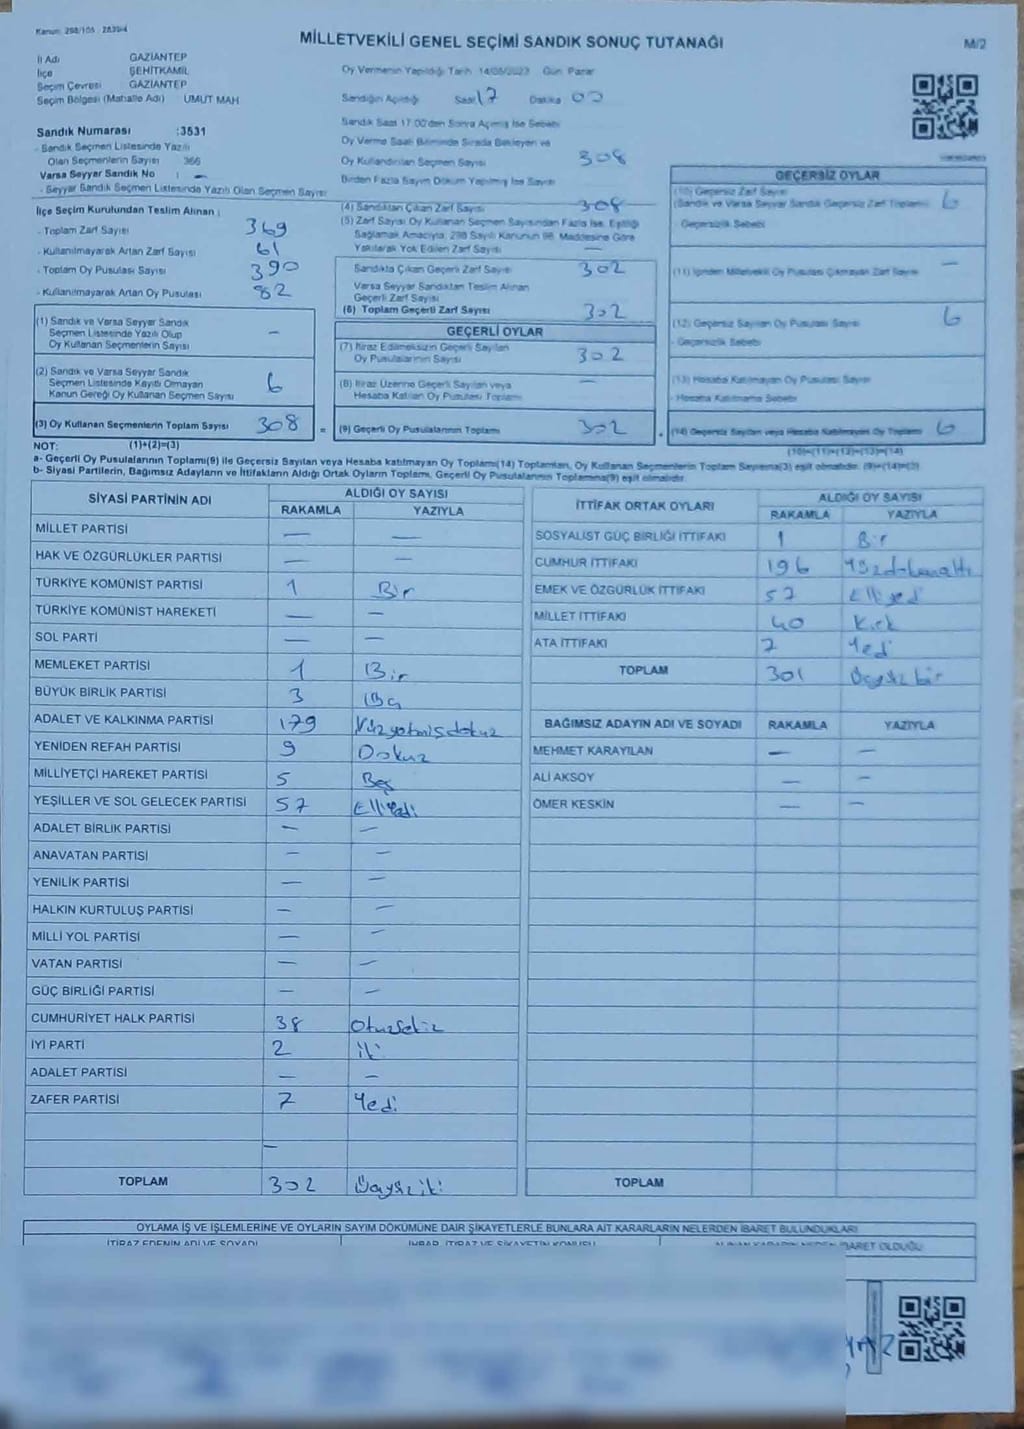 Kanun: 298/105 2839/4
MİLLETVEKİLİ GENEL SEÇİMİ SANDIK SONUÇ TUTANAĞI
M/2
İl Adı GAZİANTEP
İlçe ŞEHİTKAMİL
Seçim Çevresi GAZİANTEP
Seçim Bölgesi (Mahalle Adı) UMUT MAH
Oy Vermenin Yapıldığı Tarih 14/05/2023 Gün Pazar
Sandığın Açıldığı Saat 17 Dakika 00
Sandık Saat 17:00'den Sonra Açılmış İse Sebebi
Sandık Numarası :3531
- Sandık Seçmen Listesinde Yazılı
Olan Seçmenlerin Sayısı 366
Varsa Seyyar Sandık No : —
- Seyyar Sandık Seçmen Listesinde Yazılı Olan Seçmen Sayısı
Oy Verme Saati Bitiminde Sırada Bekleyen ve
Oy Kullandırılan Seçmen Sayısı 308
Birden Fazla Sayım Döküm Yapılmış İse Sayısı
İlçe Seçim Kurulundan Teslim Alınan :
- Toplam Zarf Sayısı 369
- Kullanılmayarak Artan Zarf Sayısı 61
- Toplam Oy Pusulası Sayısı 390
- Kullanılmayarak Artan Oy Pusulası 82
(1) Sandık ve Varsa Seyyar Sandık
Seçmen Listesinde Yazılı Olup
Oy Kullanan Seçmenlerin Sayısı —
(2) Sandık ve Varsa Seyyar Sandık
Seçmen Listesinde Kayıtlı Olmayan
Kanun Gereği Oy Kullanan Seçmen Sayısı 6
(3) Oy Kullanan Seçmenlerin Toplam Sayısı 308 =
(4) Sandıktan Çıkan Zarf Sayısı 308
(5) Zarf Sayısı Oy Kullanan Seçmen Sayısından Fazla İse, Eşitliği
Sağlamak Amacıyla, 298 Sayılı Kanunun 98. Maddesine Göre
Yakılarak Yok Edilen Zarf Sayısı —
Sandıkta Çıkan Geçerli Zarf Sayısı 302
Varsa Seyyar Sandıktan Teslim Alınan
Geçerli Zarf Sayısı
(6) Toplam Geçerli Zarf Sayısı 302
GEÇERLİ OYLAR
(7) İtiraz Edilmeksizin Geçerli Sayılan
Oy Pusulalarının Sayısı 302
(8) İtiraz Üzerine Geçerli Sayılan veya
Hesaba Katılan Oy Pusulası Toplamı —
(9) Geçerli Oy Pusulalarının Toplamı 302 +
GEÇERSİZ OYLAR
(10) Geçersiz Zarf Sayısı
(Sandık ve Varsa Seyyar Sandık Geçersiz Zarf Toplamı) 6
Geçersizlik Sebebi
(11) İçinden Milletvekili Oy Pusulası Çıkmayan Zarf Sayısı —
(12) Geçersiz Sayılan Oy Pusulası Sayısı 6
- Geçersizlik Sebebi
(13) Hesaba Katılmayan Oy Pusulası Sayısı
- Hesaba Katılmama Sebebi
(14) Geçersiz Sayılan veya Hesaba Katılmayan Oy Toplamı 6
NOT: (1)+(2)=(3)
(10)+(11)+(12)+(13)=(14)
a- Geçerli Oy Pusulalarının Toplamı(9) ile Geçersiz Sayılan veya Hesaba katılmayan Oy Toplamı(14) Toplamları, Oy Kullanan Seçmenlerin Toplam Sayısına(3) eşit olmalıdır. (9)+(14)=(3)
b- Siyasi Partilerin, Bağımsız Adayların ve İttifakların Aldığı Ortak Oyların Toplamı, Geçerli Oy Pusulasının Toplamına(9) eşit olmalıdır.
SİYASİ PARTİNİN ADI ALDIĞI OY SAYISI
RAKAMLA YAZIYLA
MİLLET PARTİSİ — —
HAK VE ÖZGÜRLÜKLER PARTİSİ — —
TÜRKİYE KOMÜNİST PARTİSİ 1 Bir
TÜRKİYE KOMÜNİST HAREKETİ — —
SOL PARTİ — —
MEMLEKET PARTİSİ 1 Bir
BÜYÜK BİRLİK PARTİSİ 3
ADALET VE KALKINMA PARTİSİ 179 Yüzyetmişdokuz
YENİDEN REFAH PARTİSİ 9 Dokuz
MİLLİYETÇİ HAREKET PARTİSİ 5 Beş
YEŞİLLER VE SOL GELECEK PARTİSİ 57 Elliyedi
ADALET BİRLİK PARTİSİ — —
ANAVATAN PARTİSİ — —
YENİLİK PARTİSİ — —
HALKIN KURTULUŞ PARTİSİ — —
MİLLİ YOL PARTİSİ — —
VATAN PARTİSİ — —
GÜÇ BİRLİĞİ PARTİSİ — —
CUMHURİYET HALK PARTİSİ 38 Otuzsekiz
İYİ PARTİ 2 iki
ADALET PARTİSİ — —
ZAFER PARTİSİ 7 Yedi
—
TOPLAM 302 Üçyüziki
İTTİFAK ORTAK OYLARI ALDIĞI OY SAYISI
RAKAMLA YAZIYLA
SOSYALİST GÜÇ BİRLİĞİ İTTİFAKI 1 Bir
CUMHUR İTTİFAKI 196 Yüzdoksanaltı
EMEK VE ÖZGÜRLÜK İTTİFAKI 57 Elliyedi
MİLLET İTTİFAKI 40 Kırk
ATA İTTİFAKI 7 Yedi
TOPLAM 301 Üçyüz bir
BAĞIMSIZ ADAYIN ADI VE SOYADI RAKAMLA YAZIYLA
MEHMET KARAYILAN — —
ALİ AKSOY — —
ÖMER KESKİN — —
TOPLAM
OYLAMA İŞ VE İŞLEMLERİNE VE OYLARIN SAYIM DÖKÜMÜNE DAİR ŞİKAYETLERLE BUNLARA AİT KARARLARIN NELERDEN İBARET BULUNDUKLARI
İTİRAZ EDENİN ADI VE SOYADI İHBAR, İTİRAZ VE ŞİKAYETİN KONUSU ALINAN KARARIN NEDEN İBARET OLDUĞU